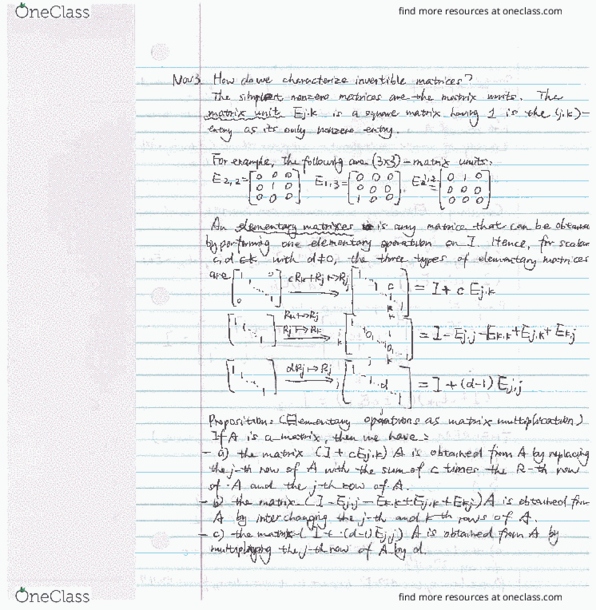 OneClass
find more resources at oneclass.com
Nov3. How do we characterize invertible matrices?
The simplest nonzero matrices are the matrix units. The
matrix unit Ej,k is a square matrix having 1 is the (j,k)-
entry as its only nonzero entry.
For example, the following are (3x3)-matrix units.
E2,2=[0 0 0 / 0 1 0 / 0 0 0] E1,3=[0 0 0 / 0 0 0 / 1 0 0], =[0 1 0 / 0 0 0 / 0 0 0]
An elementary matrixes is any matrix that can be obtained
by performing one elementary operation on I. Hence, for scalar
c,d with d≠0, the three types of elementary matrices
are cRk+Rj↦Rj = I + c Ej,k
Rk↦Rj
Rj↦Rk = I - Ej,j - Ek,k + Ej,k + Ek,j
dRj↦Rj = I + (d-1) Ej,j
Proposition: (Elementary operations as matrix multiplication)
If A is a matrix, then we have:
- a) the matrix (I + cEj,k) A is obtained from A by replacing
the j-th row of A with the sum of c times the k-th row
of A and the j-th row of A.
- b) the matrix (I - Ej,j - Ek,k + Ej,k + Ekj) A is obtained from
A by interchanging the j-th and k-th rows of A.
- c) the matrix ( I + (d-1)Ej,j) A is obtained from A by
multiplying the j-th row of A by d.
OneClass
find more resources at oneclass.com